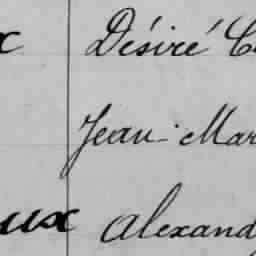 x Désiré C
Jean-Mar
ux Alexand